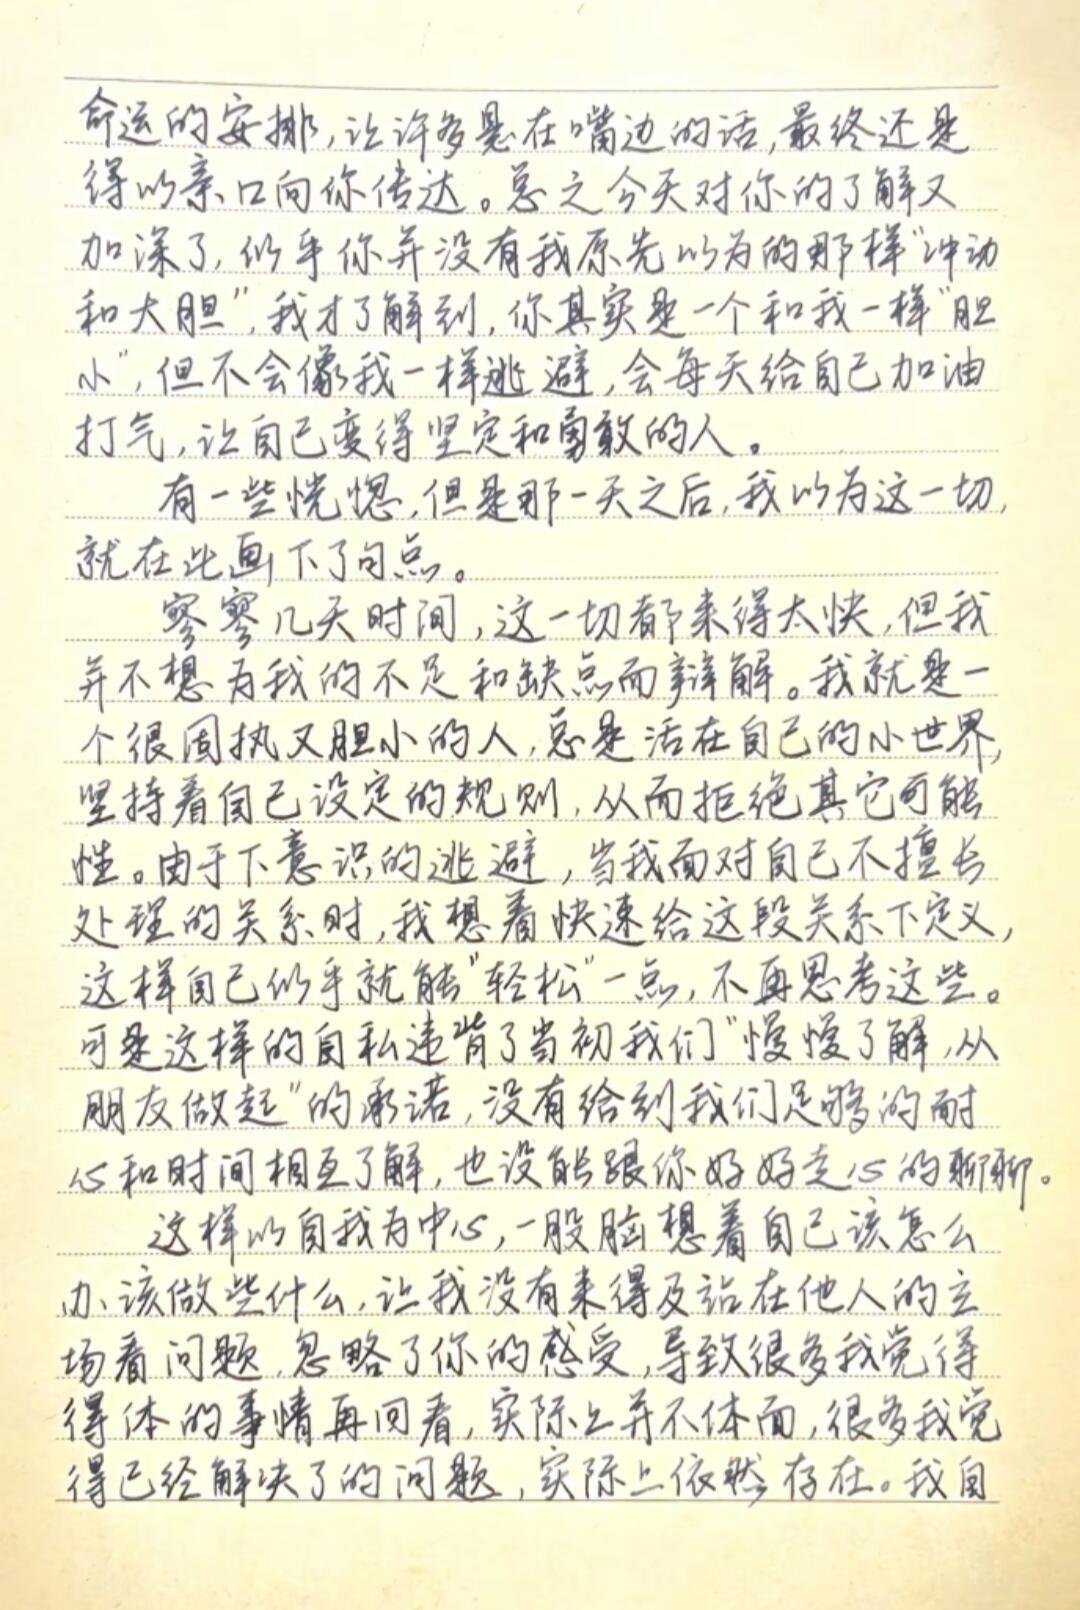 命运的安排，让许多悬在嘴边的话，最终还是
得以亲口向你传达。总之今天对你的了解又
加深了，似乎你并没有我原先以为的那样“冲动
和大胆”，我才了解到，你其实是一个和我一样“胆
小”，但不会像我一样逃避，会每天给自己加油
打气，让自己变得坚定和勇敢的人。
有一些恍惚，但是那一天之后，我以为这一切，
就在此画下了句点。
寥寥几天时间，这一切都来得太快，但我
并不想为我的不足和缺点而辩解。我就是一
个很固执又胆小的人，总是活在自己的小世界，
坚持着自己设定的规则，从而拒绝其它可能
性。由于下意识的逃避，当我面对自己不擅长
处理的关系时，我想着快速给这段关系下定义，
这样自己似乎就能“轻松”一点，不再思考这些。
可是这样的自私违背了当初我们“慢慢了解，从
朋友做起”的承诺，没有给到我们足够的耐
心和时间相互了解，也没能跟你好好走心的聊聊。
这样以自我为中心，一股脑想着自己该怎么
办、该做些什么，让我没有来得及站在他人的立
场看问题，忽略了你的感受，导致很多我觉得
得体的事情再回看，实际上并不体面，很多我觉
得已经解决了的问题，实际上依然存在。我自